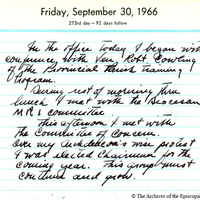 Friday, September 30, 1966
273rd day – 92 days follow
In the office today I began with
conference with Ven. Robt. Cowling
of the Provincial Parish Training
Program.
During rest of morning thru
lunch I met with the Diocesan
MRI committee.
This afternoon I met with
the Committee of Concern.
Over my [sic] protest
I was elected Chairman for the
coming year. This group must
continue and grow.
© The Archives of the Episcopal